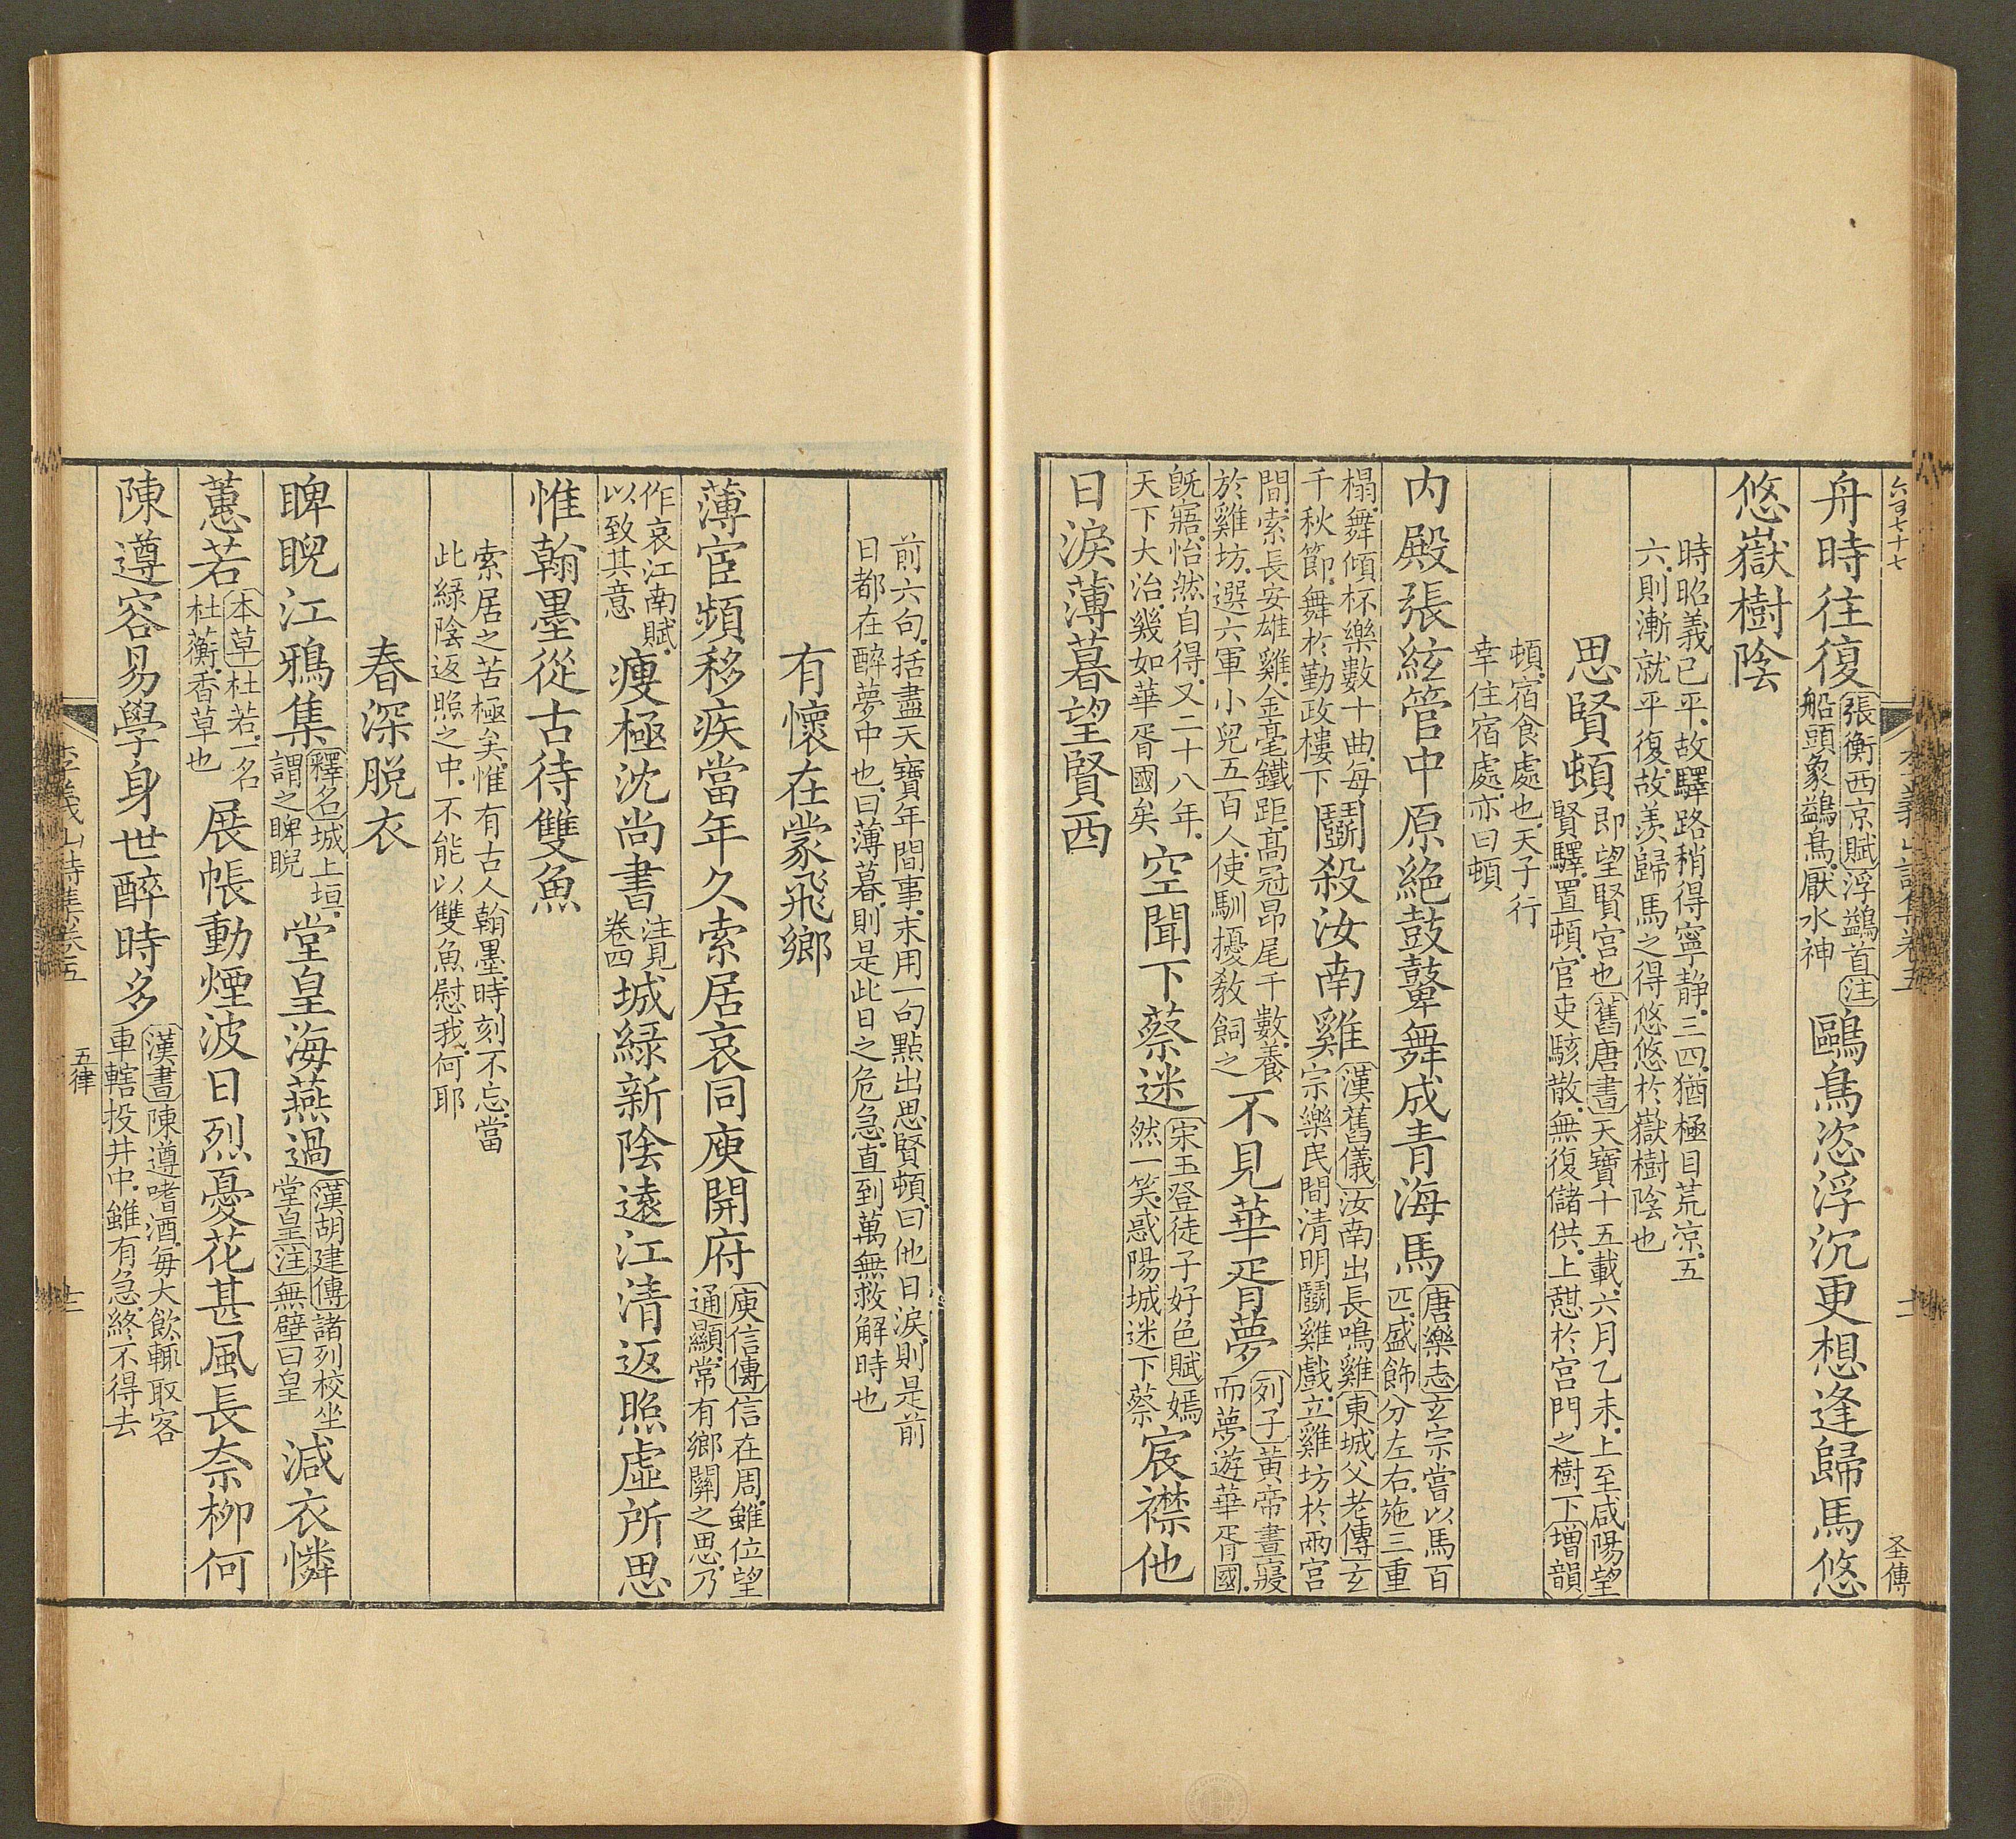 舟時往復張衡西京賦浮鷁首注鷗鳥恣浮沉更想逢歸馬悠
船頭象鷁鳥厭水神
悠嶽樹陰
時昭義已平故驛路稍得寧静三四猶極目荒凉五
六則漸就平復故羨歸馬之得悠悠於嶽樹陰也
思賢頓即望賢宮也舊唐書天寶十五載六月乙未上至咸陽望
賢驛置頓官吏駭散無復儲供上憇於宮門之樹下增韻
頓宿食處也天子行
幸住宿處亦曰頓
内殿張絃管中原絶鼓鼙舞成青海馬唐樂志玄宗嘗以馬百
匹盛飾分左右施三重
榻舞傾杯樂數十曲每
千秋節舞於勤政樓下鬭殺汝南雞漢舊儀汝南出長鳴雞東城父老傳玄
宗樂民間清明鬭雞戲立雞坊於兩宮
間索長安雄雞金毫鐵距高冠昂尾千數養
於雞坊選六軍小兒五百人使馴擾教飼之不見華胥夢列子黃帝晝寢
而夢遊華胥國
旣寤怡然自得又二十八年
天下大治幾如華胥國矣空聞下蔡迷宋玉登徒子好色賦嫣
然一笑惑陽城迷下蔡宸襟他
日淚薄暮望賢西
前六句括盡天寶年間事末用一句點出思賢頓曰他日淚則是前
日都在醉夢中也曰薄暮則是此日之危急直到萬無救解時也
有懷在蒙飛鄉
薄宦頻移疾當年久索居哀同庾開府庾信傳信在周雖位望
通顯常有鄉關之思乃
作哀江南賦
以致其意瘦極沈尚書注見
卷四城緑新陰遠江清返照虛所思
惟翰墨從古待雙魚
索居之苦極矣惟有古人翰墨時刻不忘當
此緑陰返照之中不能以雙魚慰我何耶
春深脱衣
睥睨江鴉集釋名城上垣
謂之睥睨堂皇海燕過漢胡建傳諸列校坐
堂皇注無壁曰皇減衣憐
蕙若本草杜若一名
杜蘅香草也展帳動煙波日烈憂花甚風長奈柳何
陳遵容易學身世醉時多漢書陳遵嗜酒每大飲輒取客
車轄投井中雖有急終不得去
李義山詩集卷五
五律